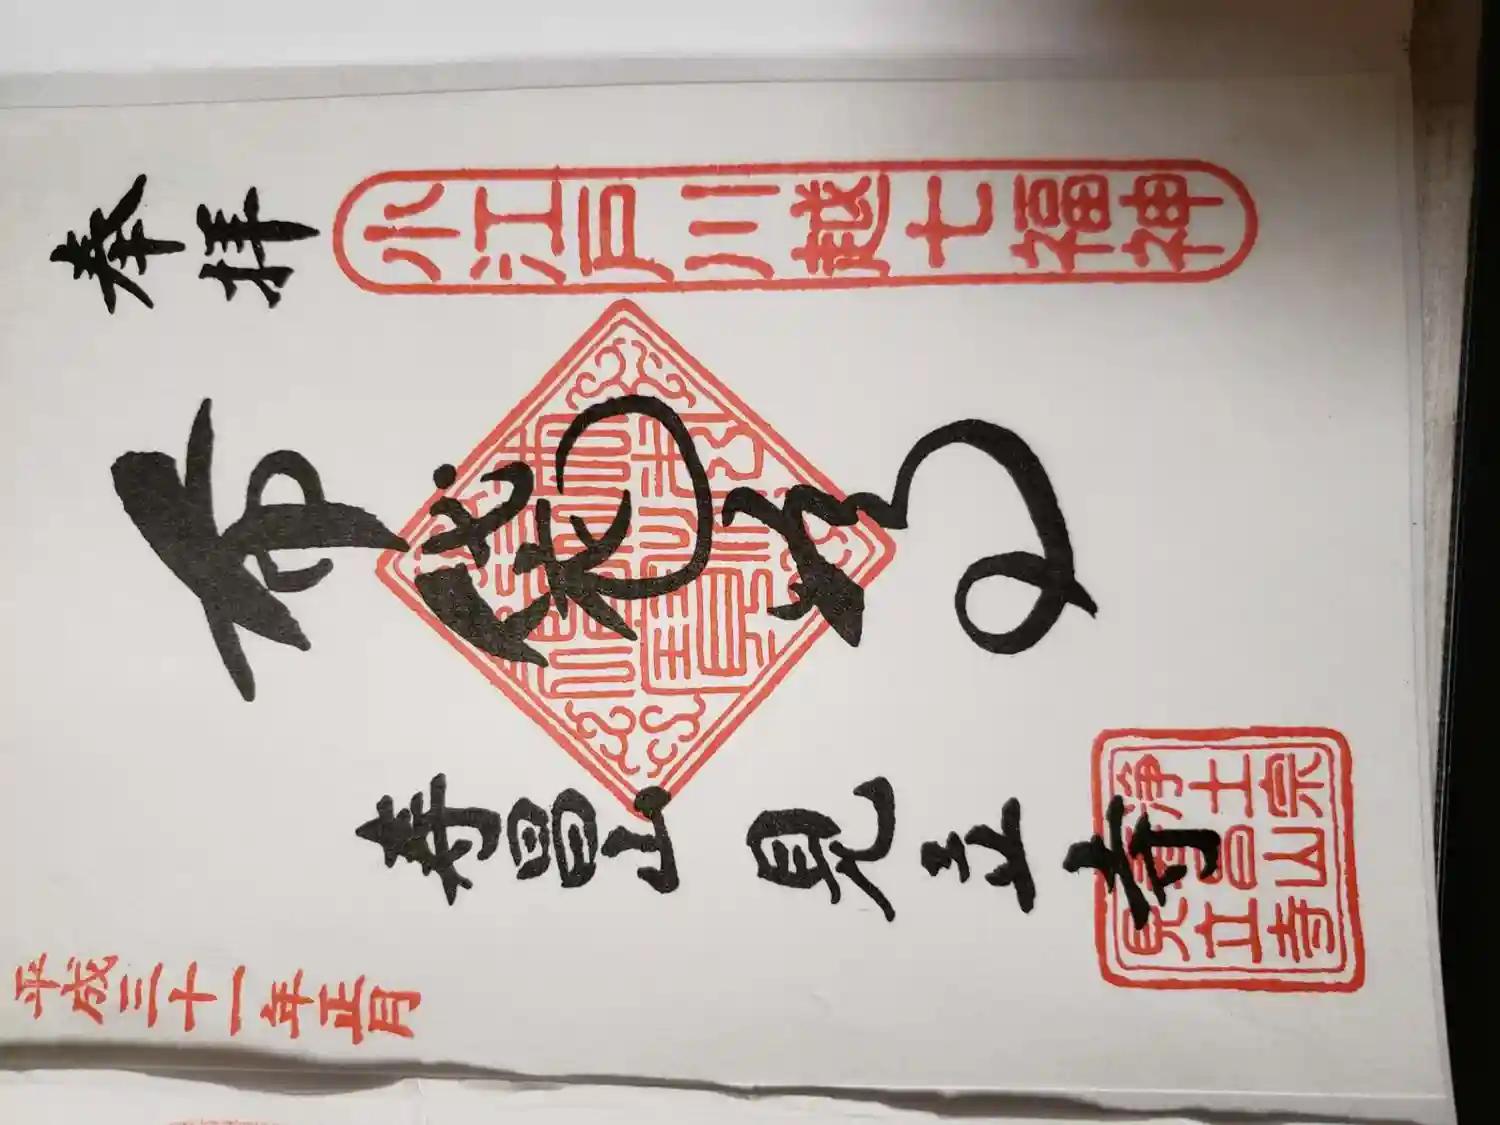 奉拝
小江戸川越七福神
布袋尊
寿昌山 見立寺
浄土宗
壽昌山
見立寺
平成三十一年正月